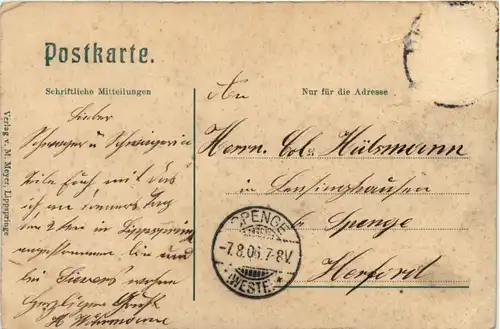 Postkarte.
Schriftliche Mitteilungen
Nur für die Adresse
Lieber
Schwager u Schwägerin
Teile Euch mit das
ich am
in Lippspringe
angekommen bin und
bei Sievers wohne
Herzlichen Gruß
An
Herrn Hülsmann
in Lenzinghausen
b. Spenge
Herford
SPENGE
-7.8.06.7-8V.
(WESTF.)
Verlag v. M. Meyer, Lippspringe